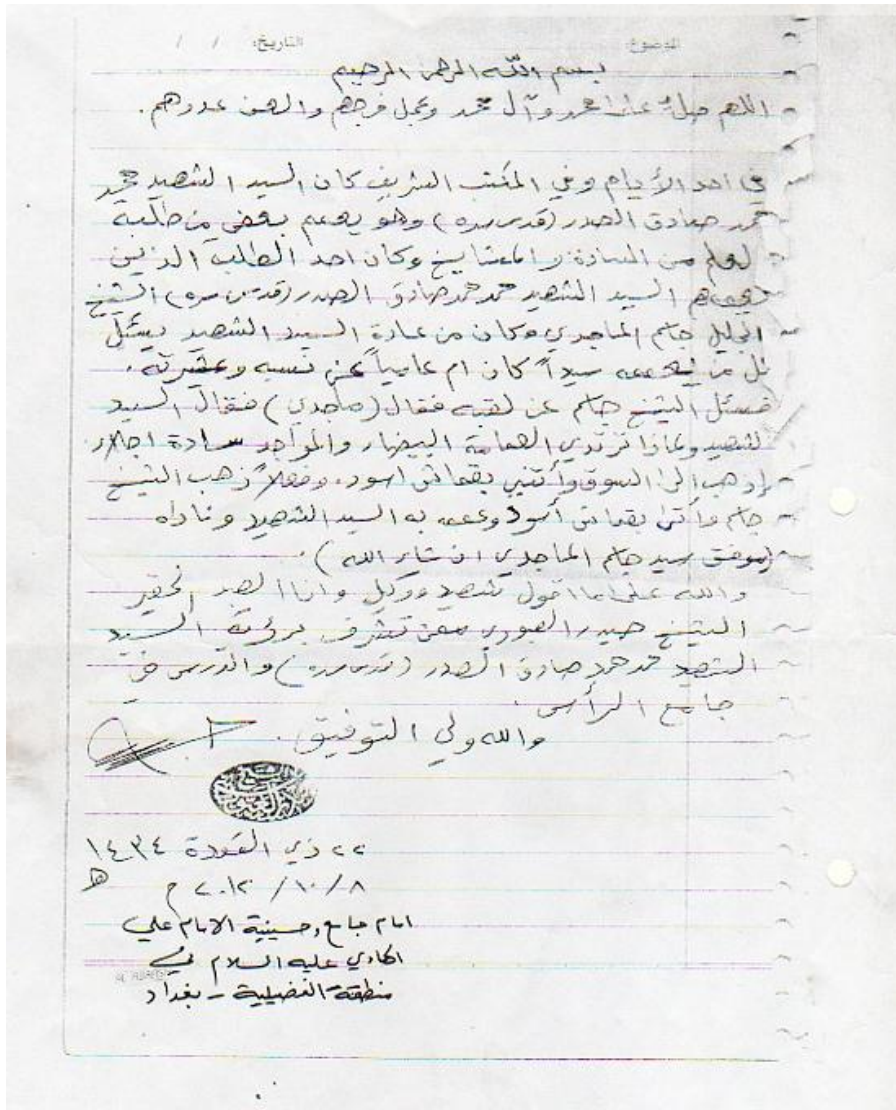 الموضوع: التاريخ: / /
بسم الله الرحمن الرحيم
اللهم صلِّ على محمد وآل محمد وعجل فرجهم والعن عدوهم.
في احد الأيام وفي المكتب الشريف كان السيد الشهيد محمد
محمد صادق الصدر (قدس سره) وهو يعمم بعض من طلبة
لعلم من السادة والمشايخ وكان احد الطلب الذين
السيد الشهيد محمد محمد صادق الصدر (قدس سره) الشيخ
الجليل جاسم الماجدي وكان من عادة السيد الشهيد يسئل
كل من يعممه سيداً كان ام عامياً عن نسبه وعشيرته.
فسئل الشيخ جاسم عن لقبه فقال (ماجدي) فقال السيد
الشهيد ولماذا ترتدي العمامة البيضاء والمواجد سادة اجلاء.
إذهب الى السوق وأتني بقماش اسود. وفعلاً ذهب الشيخ
جاسم وأتى بقماش أسود وعممه به السيد الشهيد وناداه
(موفق سيد جاسم الماجدي ان شاء الله).
والله على ما اقول شهيد ووكيل وانا العبد الحقير
الشيخ حيدر العبودي ممن تشرف برؤية السيد
الشهيد محمد محمد صادق الصدر (قدس سره) والدرس في
جامع الرأس.
والله ولي التوفيق.
٢٢ ذي القعدة ١٤٣٤
هـ
٨/١٠/٢٠١٢ م
امام جامع وحسينية الامام علي
الهادي عليه السلام في
منطقة الفضيلية - بغداد